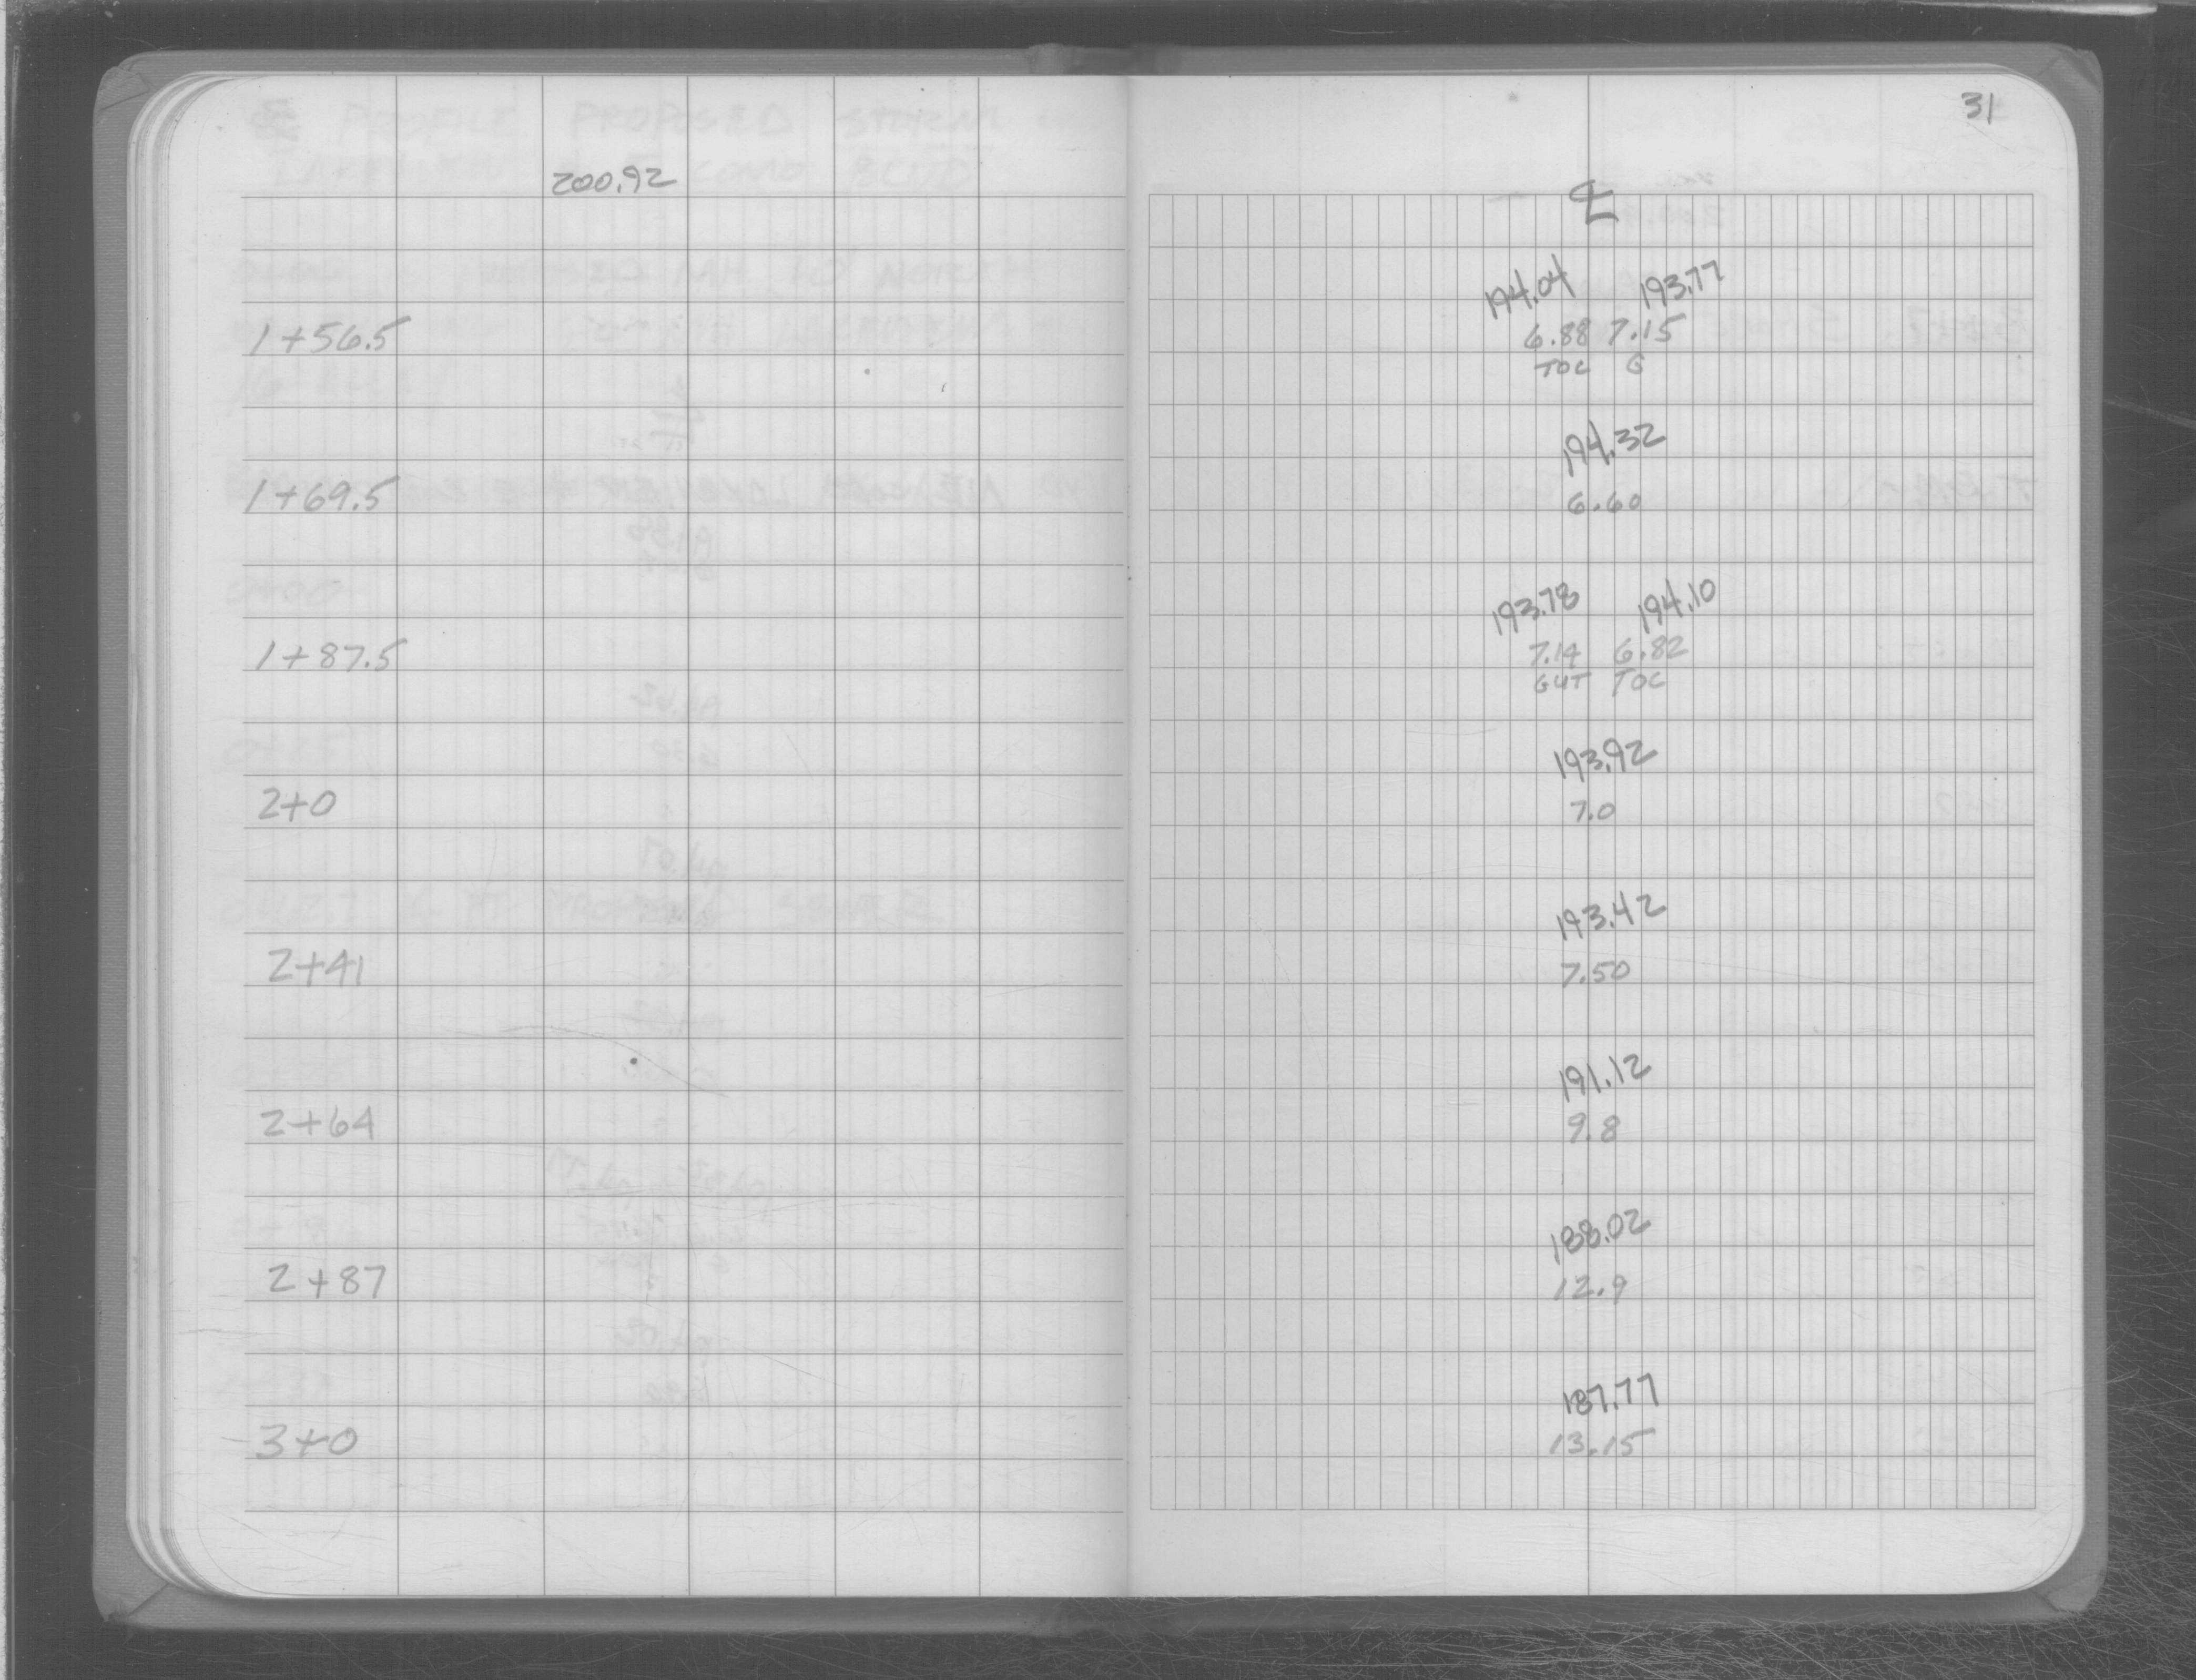 31
200.92
℄
194.04 193.77
1+56.5 6.88 7.15
TOC G
194.32
1+69.5 6.60
193.78 194.10
1+87.5 7.14 6.82
GUT TOC
193.92
2+0 7.0
193.42
2+41 7.50
191.12
2+64 9.8
188.02
2+87 12.9
187.77
3+0 13.15